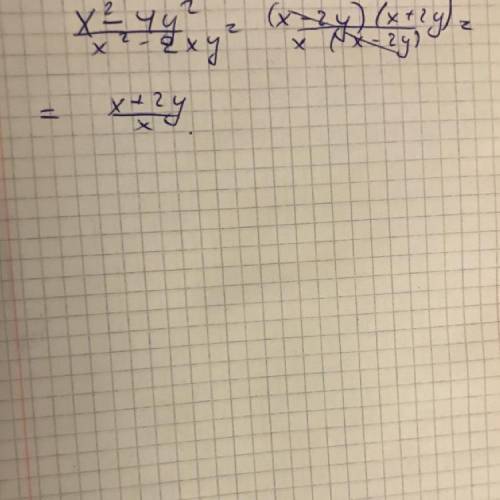 (x² - 4y²)/(x² - 2xy) = ((x - 2y)(x + 2y))/(x(x - 2y)) =
= (x + 2y)/x.